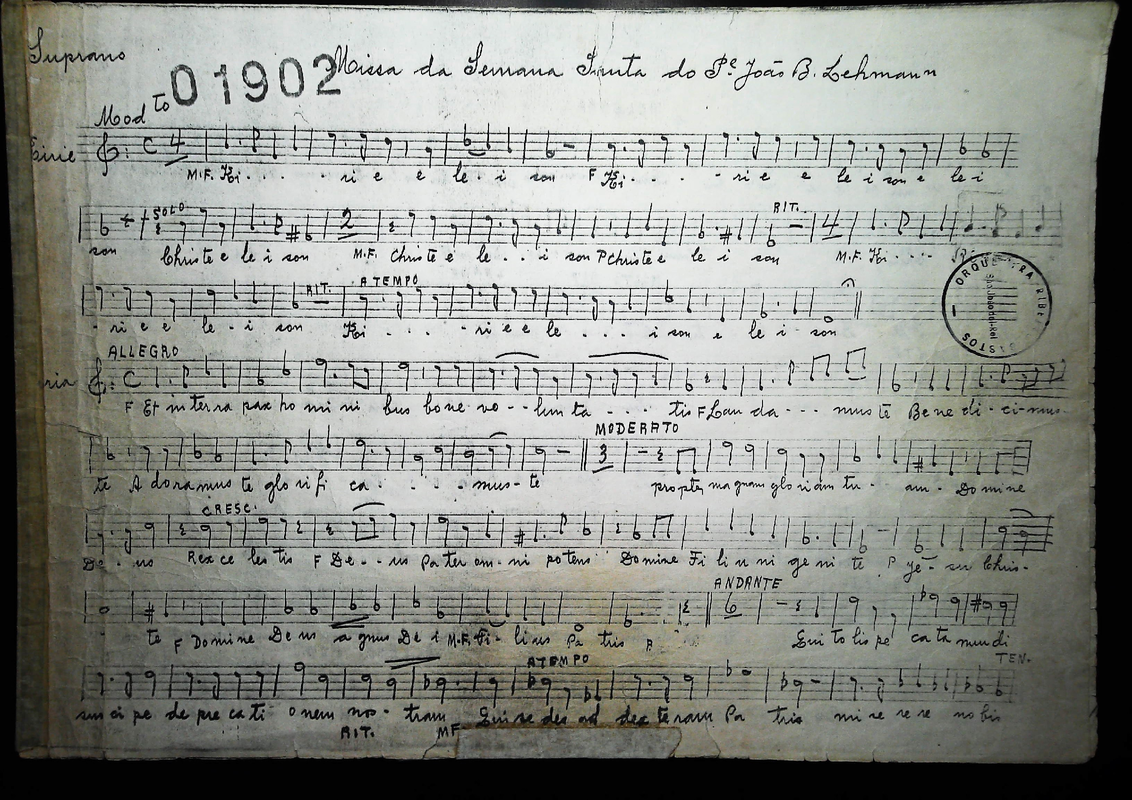 Soprano
01902 Missa da Semana Santa do Pe. João B. Lehmann
Mod to
Kirie C 4
M.F. Ki . . . . ri e e le . i son F Ki . . . . ri e e le i son e le i
SOLO 2 RIT. 4
son Christe e le i son M.F. Christe e le . . i son P Christe e le i son M.F. Ki . . . .
RIT. A TEMPO
. ri e e le . i son Ki . . . . ri e e le . . . i son e le i son
ORQUESTRA RIBEIRO BASTOS
ALLEGRO
ria C
F Et in terra pax ho mi ni bus bone vo - - lun ta . . . tis F Lau da - - - mus te Be ne di - ci - mus
MODERATO
3
te A doramus te glo ri fi ca . . . . mus - te propter magnam glo riam tu - - am - Domine
CRESC.
De . . us Rex ce les tis F De - - us Pa ter om - ni po tens Domine Fi li u ni ge ni te P Je - su Chris -
ANDANTE
6
te F Domine De us a gnus De i M.F. Fi - li us Pa tris Qui to lis pe ca ta mundi
TEN.
A TEMPO
sus ci pe de pre ca ti o nem nos - tram Qui se des ad dex te ram Pa tris mi se re re no bis
RIT. MF